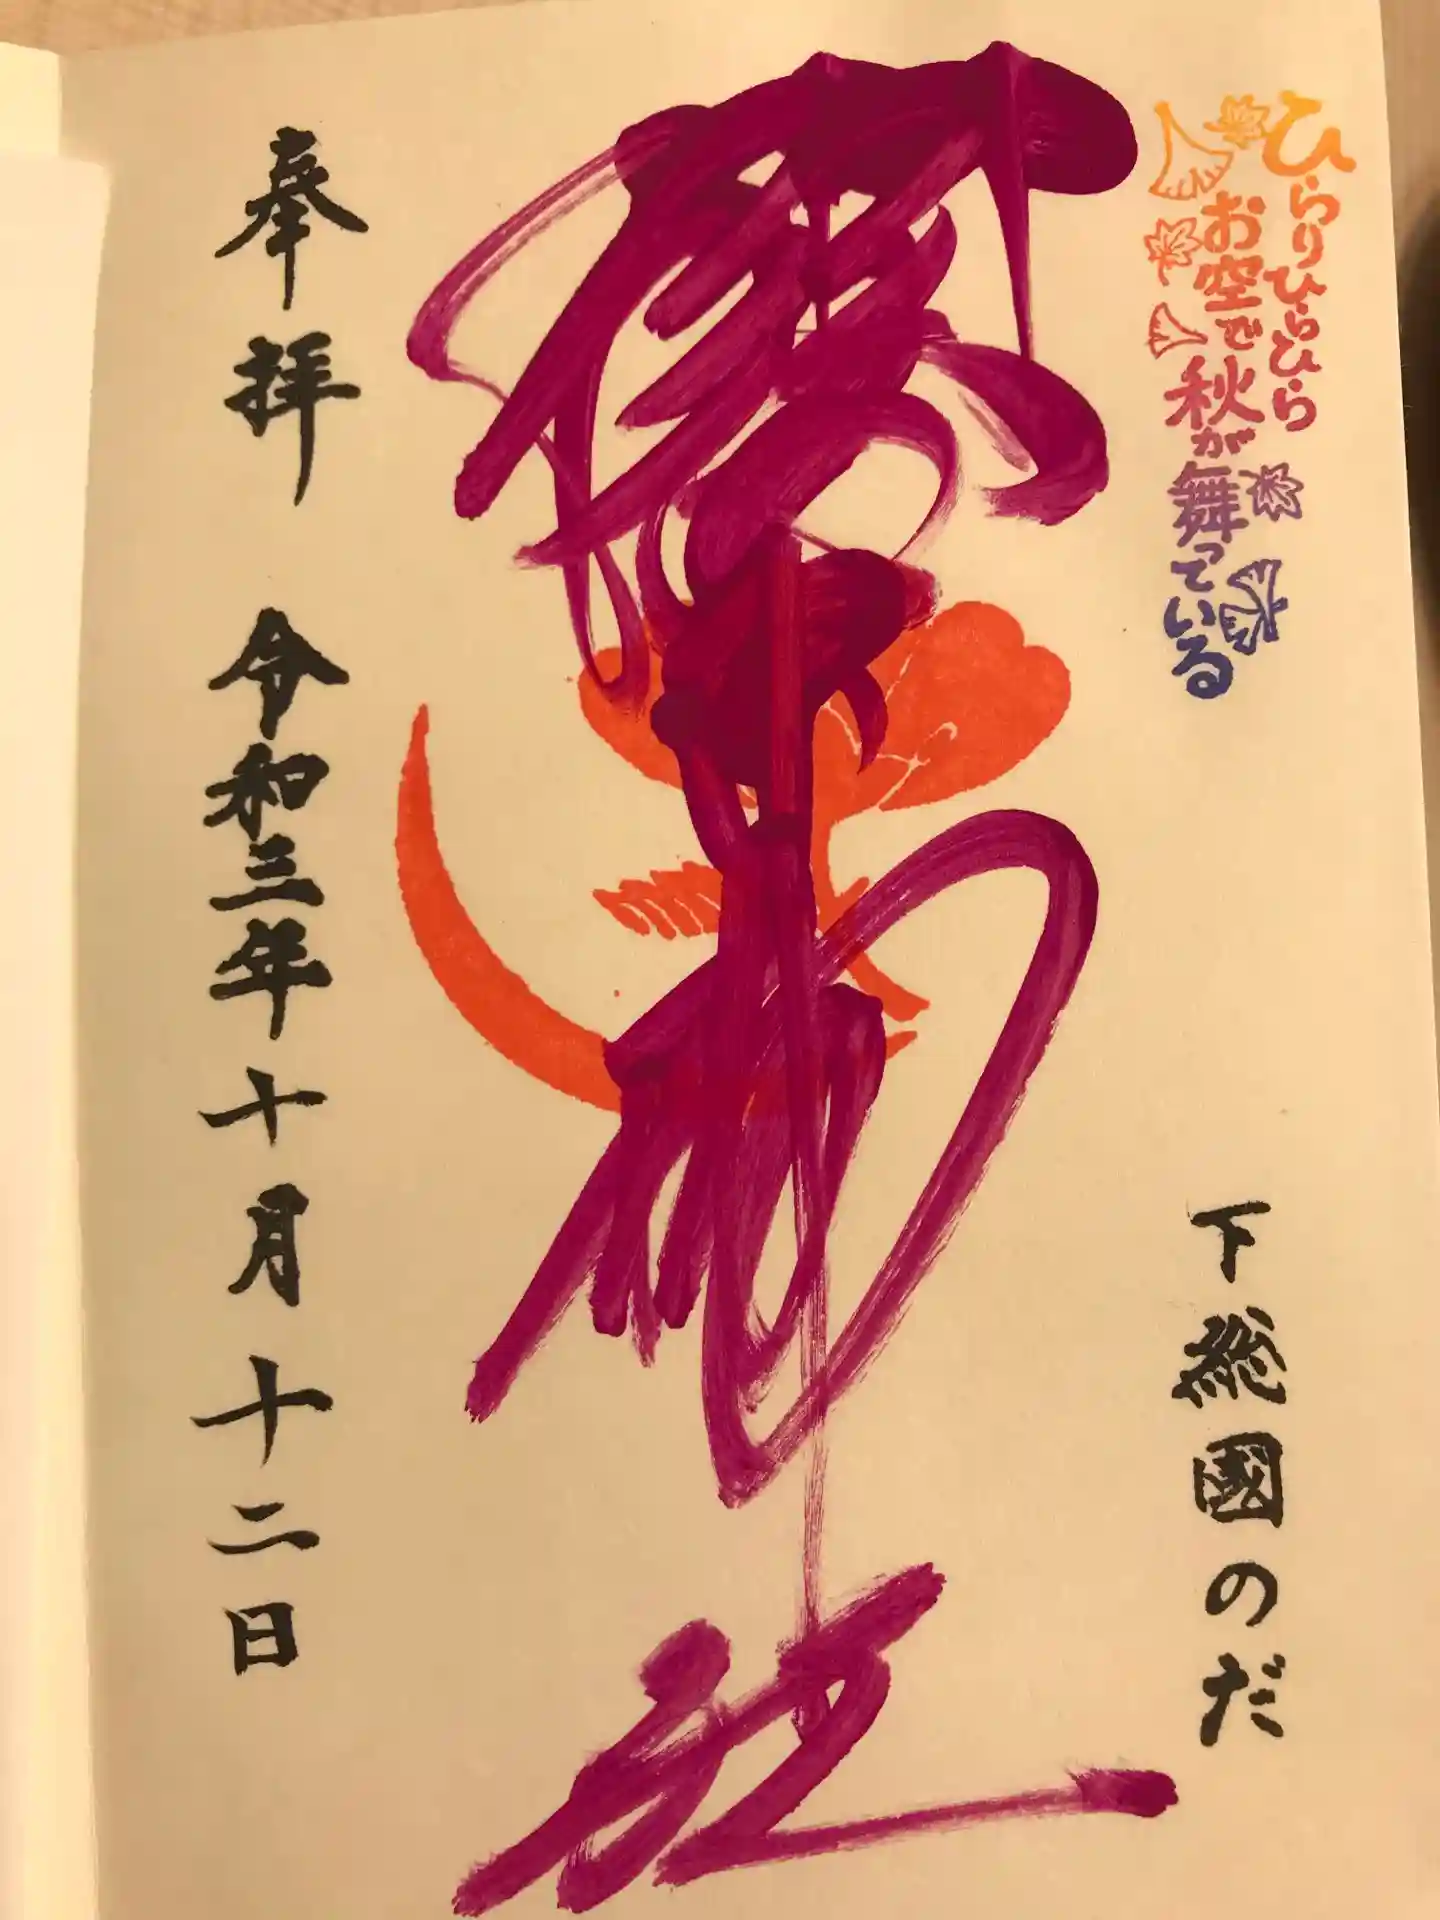 ひらりひらひら
お空で秋が舞っている
下総國のだ
櫻木神社
奉拝 令和三年十月十二日